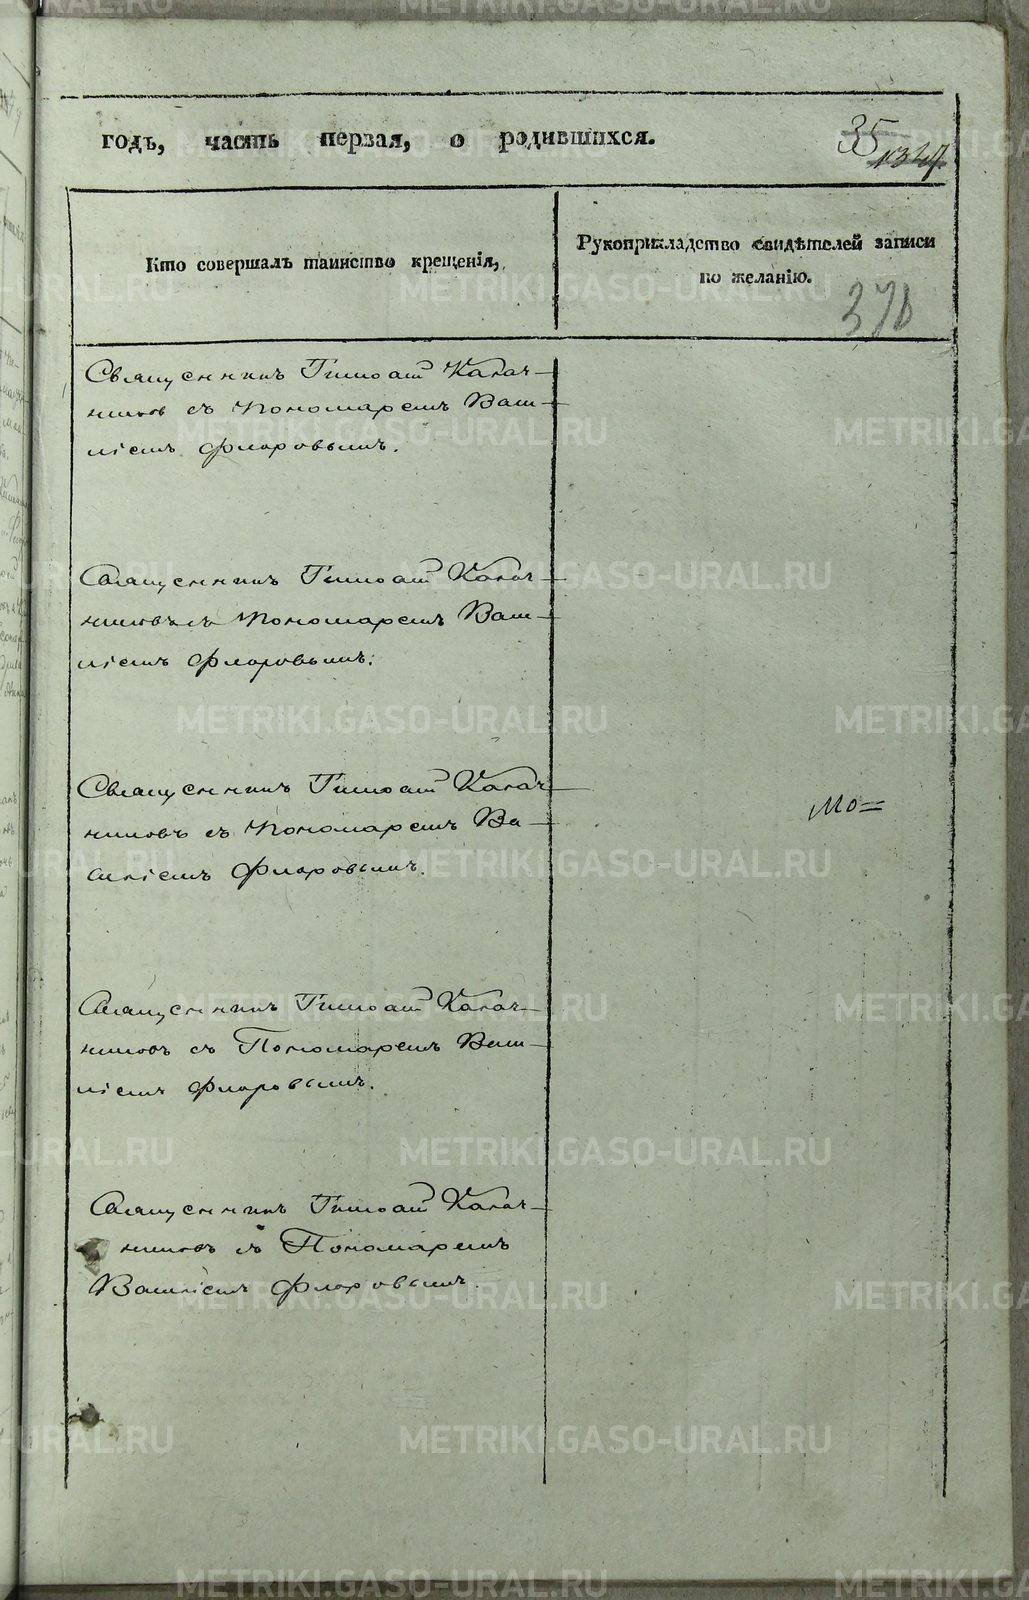 годъ, часть первая, о родившихся.
35
1347
Кто совершалъ таинство крещенія,
Рукоприкладство свидѣтелей записи
по желанію.
370
Священникъ Тимоѳей Калач-
никовъ съ Пономаремъ Васи-
ліемъ Флоровымъ.
Священникъ Тимоѳей Калач-
никовъ съ Пономаремъ Васи-
ліемъ Флоровымъ.
Священникъ Тимоѳей Калач-
никовъ съ Пономаремъ Ва-
силіемъ Флоровымъ.
Мо=
Священникъ Тимоѳей Калач-
никовъ съ Пономаремъ Васи-
ліемъ Флоровымъ.
Священникъ Тимоѳей Калач-
никовъ съ Пономаремъ
Василіемъ Флоровымъ.
METRIKI.GASO-URAL.RU